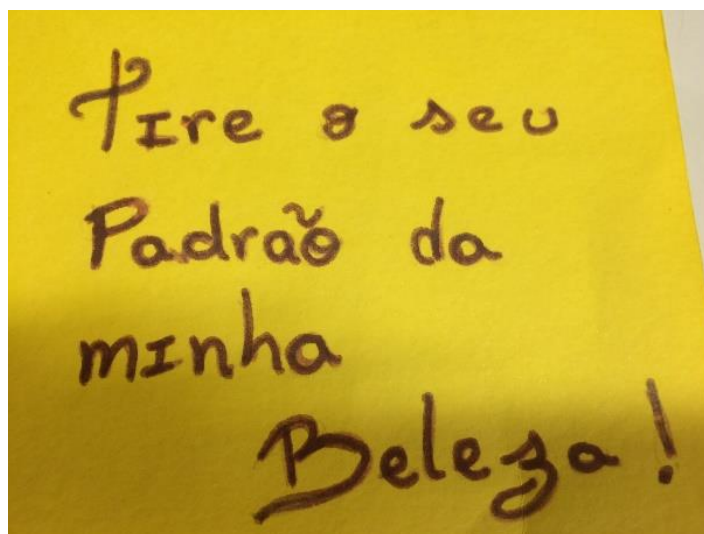 Tire o seu
Padrão da
minha
Beleza!